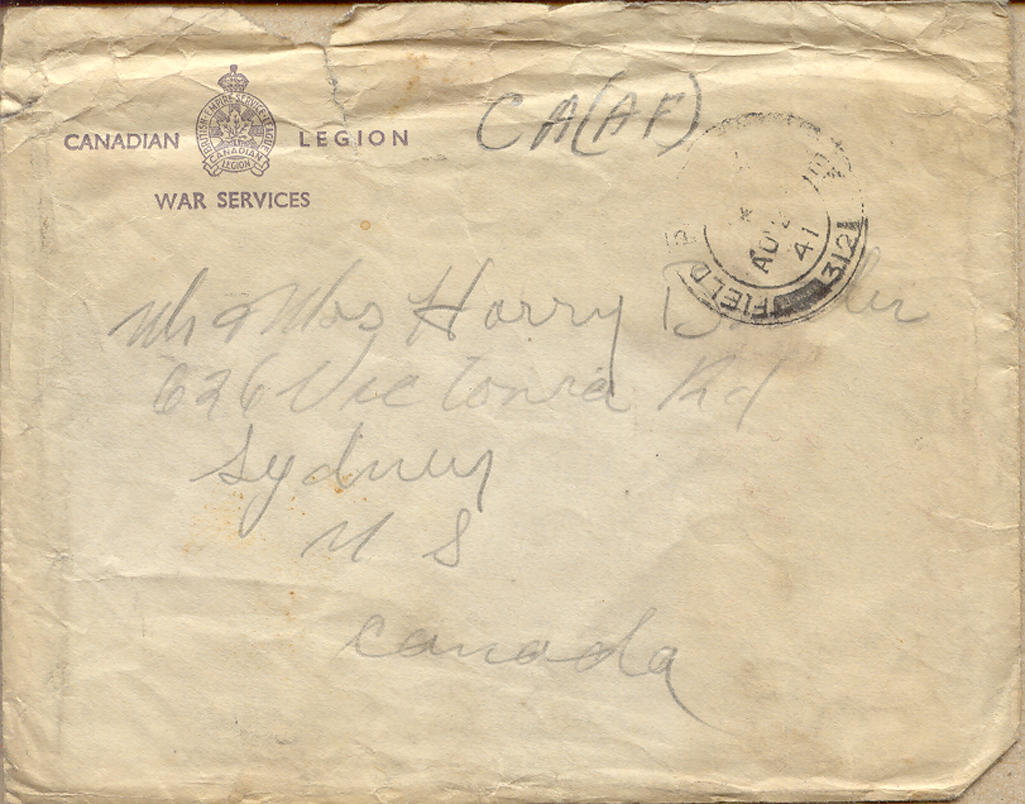 CA(AF)
BRITISH·EMPIRE·SERVICE·LEAGUE
CANADIAN LEGION
CANADIAN
LEGION
WAR SERVICES
FIELD
312
AU
41
Mr & Mrs Harry
626 Victoria Rd
Sydney
N S
Canada